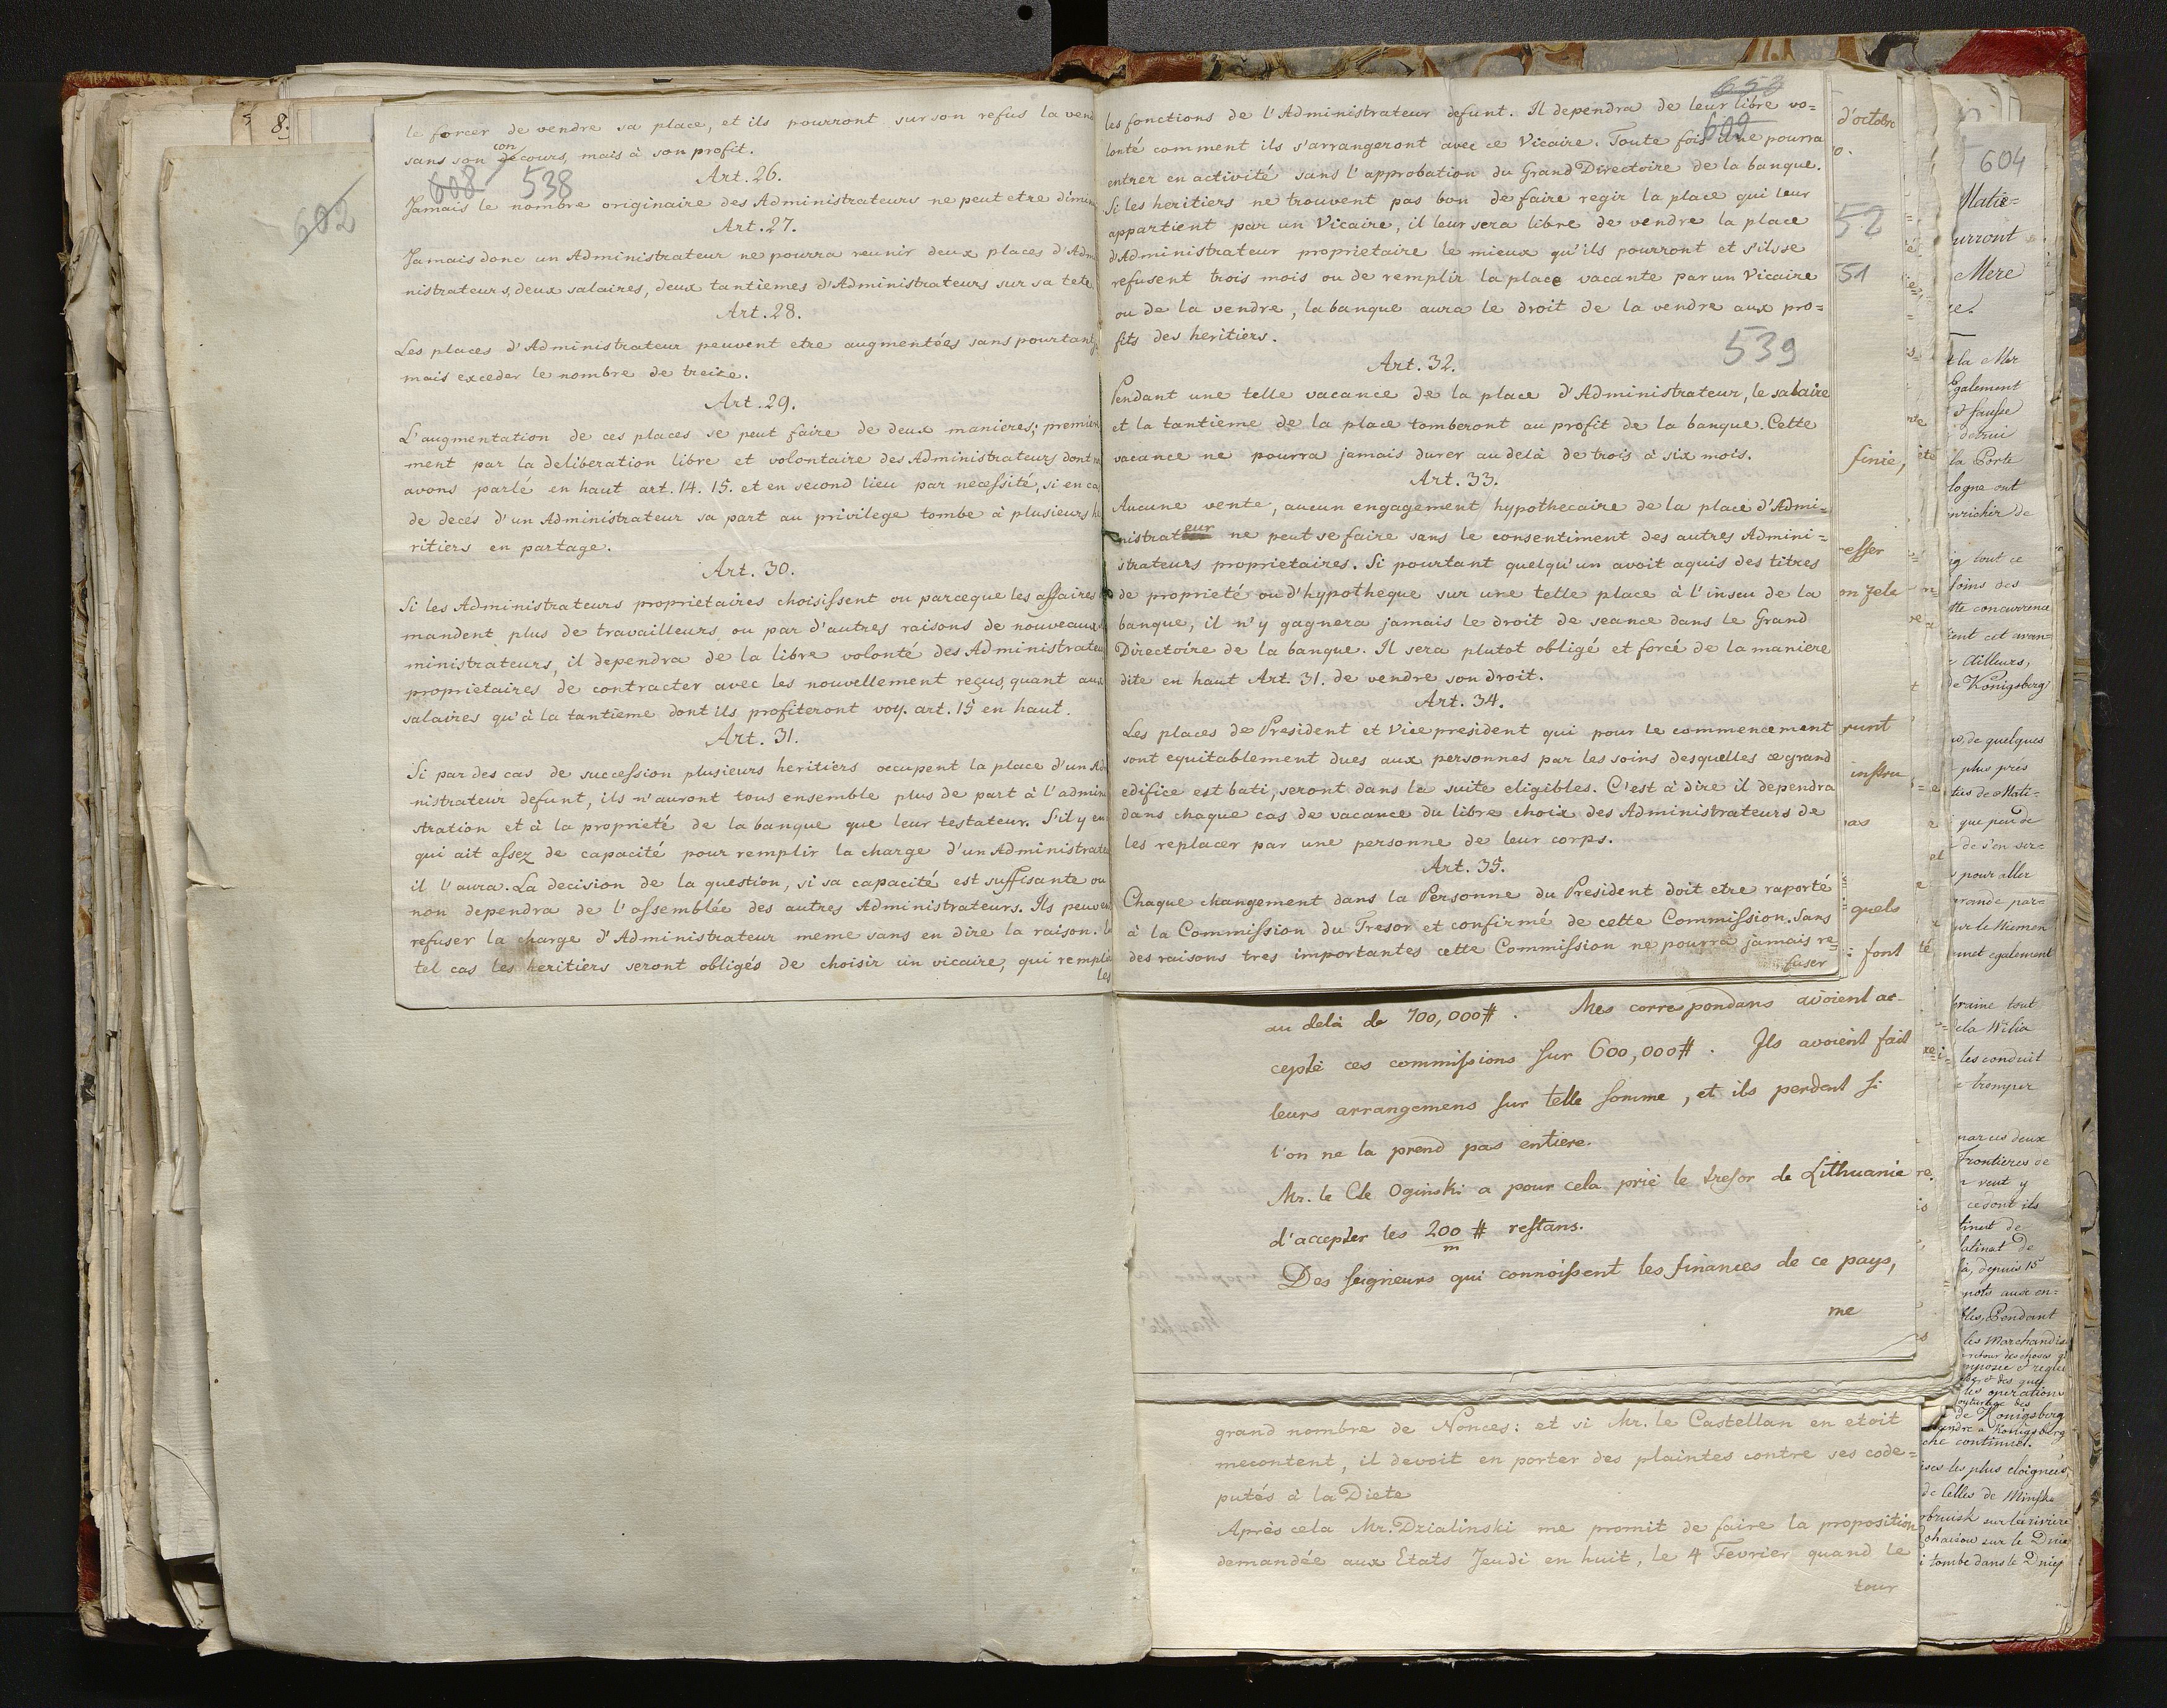 8.
602
le forcer de vendre sa place, et ils pourront sur son refus la vend
sans son concours, mais à son profit.
Art. 26.
608 538
Jamais le nombre originaire des Administrateurs ne peut etre dimin
Art. 27.
Jamais donc un Administrateur ne pourra reunir deux places d'Adm
nistrateurs, deux salaires, deux tantiemes d'Administrateurs sur sa tete
Art. 28.
Les places d'Administrateur peuvent etre augmentées sans pourtant
mais exceder le nombre de treize.
Art. 29.
L'augmentation de ces places se peut faire de deux manieres; premiere
ment par la deliberation libre et volontaire des Administrateurs dont
avons parlé en haut art. 14. 15. et en second lieu par necessité, si en ca
de deces d'un Administrateur sa part au privilege tombe à plusieurs he
ritiers en partage.
Art. 30.
Si les Administrateurs proprietaires choisissent ou parceque les affaires
mandent plus de travailleurs ou par d'autres raisons de nouveaux
ministrateurs, il dependra de la libre volonté des Administrateu
proprietaires de contracter avec les nouvellement reçus, quant aux
salaires qu'à la tantieme dont ils profiteront voy. art. 15 en haut.
Art. 31.
Si par des cas de succession plusieurs heritiers occupent la place d'un Ad
nistrateur defunt, ils n'auront tous ensemble plus de part à l'admini
stration et à la proprieté de la banque que leur testateur. S'il y en
qui ait assez de capacité pour remplir la charge d'un Administrate
il l'aura. La decision de la question, si sa capacité est suffisante ou
non dependra de l'assemblée des autres Administrateurs. Ils peuven
refuser la charge d'Administrateur meme sans en dire la raison.
tel cas les heritiers seront obligés de choisir un vicaire, qui remplis
les
653
les fonctions de l'Administrateur defunt. Il dependra de leur libre vo=
609
lonté comment ils s'arrangeront avec ce Vicaire. Toute fois il ne pourra
entrer en activité sans l'approbation du Grand Directoire de la banque.
Si les heritiers ne trouvent pas bon de faire regir la place qui leur
appartient par un Vicaire, il leur sera libre de vendre la place
d'Administrateur proprietaire le mieux qu'ils pourront et s'ils se
refusent trois mois ou de remplir la place vacante par un Vicaire
ou de la vendre, la banque aura le droit de la vendre aux pro=
fits des heritiers.
539
Art. 32.
Pendant une telle vacance de la place d'Administrateur, le salaire
et la tantieme de la place tomberont au profit de la banque. Cette
vacance ne pourra jamais durer au delà de trois à six mois.
Art. 33.
Aucune vente, aucun engagement hypothecaire de la place d'Admi=
nistrateur ne peut se faire sans le consentiment des autres Admini=
strateurs proprietaires. Si pourtant quelqu'un avoit aquis des titres
de proprieté ou d'hypotheque sur une telle place à l'inscu de la
banque, il n'y gagnera jamais le droit de seance dans le Grand
Directoire de la banque. Il sera plutot obligé et forcé de la maniere
dite en haut Art. 31. de vendre son droit.
Art. 34.
Les places de President et Vice president qui pour le commencement
sont equitablement dues aux personnes par les soins desquelles ce grand
edifice est bati, seront dans la suite eligibles. C'est à dire il dependra
dans chaque cas de vacance du libre choix des Administrateurs de
les replacer par une personne de leur corps.
Art. 35.
Chaque changement dans la Personne du President doit etre raporté
à la Commission du Tresor et confirmé de cette Commission. Sans
des raisons tres importantes cette Commission ne pourra jamais re=
fuser
au delà de 700,000 #. Mes correpondans avoient ac-
cepté ces commissions sur 600,000 #. Ils avoient fait
leurs arrangemens sur telle somme, et ils perdent si
l'on ne la prend pas entiere.
Mr. le Cte Oginski a pour cela prié le tresor de Lithuanie
d'accepter les 200 # restans.
m
Des seigneurs qui connoissent les finances de ce pays,
me
grand nombre de Nonces: et si Mr. le Castellan en etoit
mecontent, il devoit en porter des plaintes contre ses code=
putés à la Diete
Après cela Mr. Dzialinski me promit de faire la proposition
demandée aux Etats Jeudi en huit, le 4 Fevrier quand le
tour
d'octobr
52
51
finie,
esser
on zele
runt
instru
quels
font
604
Matie=
urront
Mere
et la Mer
Egalement
la Porte
logne ont
enrichir de
tout ce
soins des
tte concurrence
ient cet avan=
Ailleurs,
de Königsberg
de quelques
plus près
que peu de
de s'en ser=
pour aller
grande par=
sur le Niemen
met egalement
tout
la Wilia
les conduit
tromper
par ces deux
Frontieres de
veut y
ce dont ils
latinat de
depuis 15
mois aux en=
Pendant
les Marchandise
les operations
de Königsberg
che continuel.
les plus eloignées,
de Celles de Minsk
sur la riviere
sur le Dnie
i tombe dans le Dniep